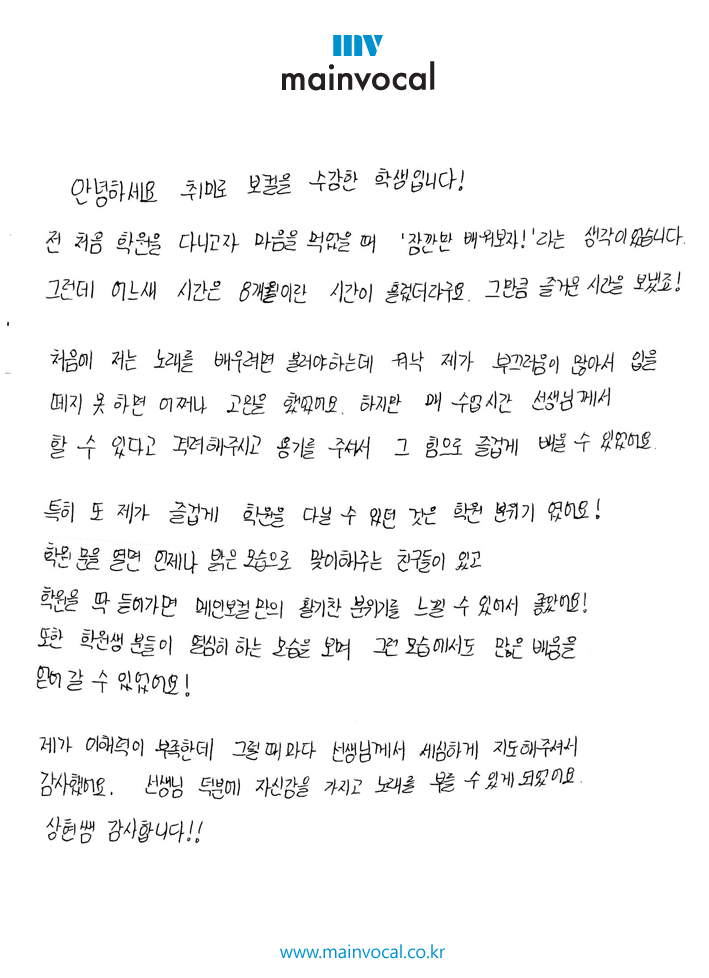 mv
mainvocal
안녕하세요 취미로 보컬을 수강한 학생입니다!
전 처음 학원을 다니고자 마음을 먹었을 때 '잠깐만 배워보자!'라는 생각이었습니다.
그런데 어느새 시간은 8개월이란 시간이 흘렀더라구요. 그만큼 즐거운 시간을 보냈죠!
처음에 저는 노래를 배우려면 불러야하는데 워낙 제가 부끄러움이 많아서 입을
떼지 못 하면 어쩌나 고민을 했었어요. 하지만 매 수업시간 선생님께서
할 수 있다고 격려해주시고 용기를 주셔서 그 힘으로 즐겁게 배울 수 있었어요.
특히 또 제가 즐겁게 학원을 다닐 수 있던 것은 학원 분위기 였어요!
학원 문을 열면 언제나 밝은 모습으로 맞이해주는 친구들이 있고
학원을 딱 들어가면 메인보컬만의 활기찬 분위기를 느낄 수 있어서 좋았어요!
또한 학원생 분들이 열심히 하는 모습을 보며 그런 모습에서도 많은 배움을
얻어 갈 수 있었어요!
제가 이해력이 부족한데 그럴때마다 선생님께서 세심하게 지도해주셔서
감사했어요. 선생님 덕분에 자신감을 가지고 노래를 부를 수 있게 되었어요.
상현쌤 감사합니다!!
www.mainvocal.co.kr